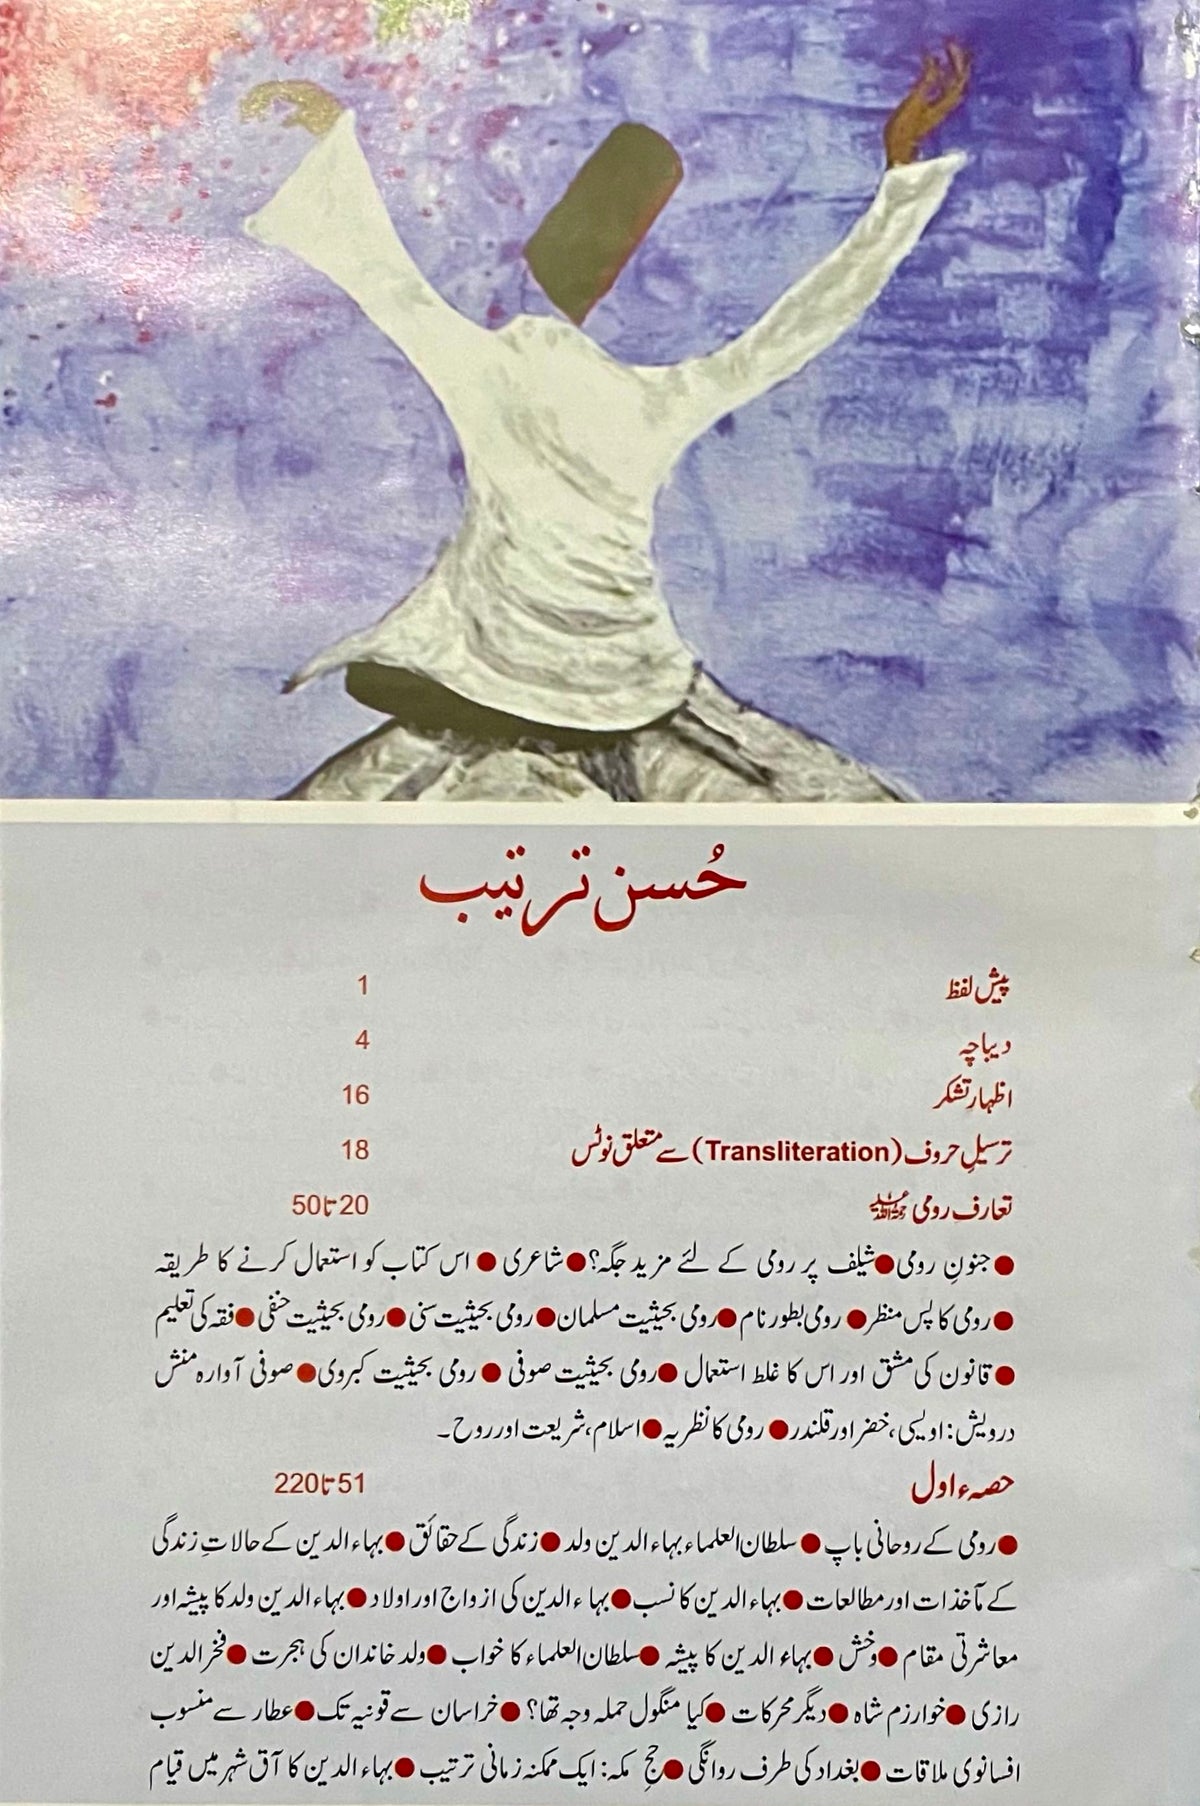 حُسن ترتیب
پیش لفظ 1
دیباچہ 4
اظہار تشکر 16
ترسیلِ حروف (Transliteration) سے متعلق نوٹس 18
تعارف رومی رحمۃ اللہ علیہ 20 تا 50
● جنونِ رومی ● شیلف پر رومی کے لئے مزید جگہ؟ ● شاعری ● اس کتاب کو استعمال کرنے کا طریقہ
● رومی کا پس منظر ● رومی بطور نام ● رومی بحیثیت مسلمان ● رومی بحیثیت سنی ● رومی بحیثیت حنفی ● فقہ کی تعلیم
● قانون کی مشق اور اس کا غلط استعمال ● رومی بحیثیت صوفی ● رومی بحیثیت کبروی ● صوفی آوارہ منش
درویش: اویسی، خضر اور قلندر ● رومی کا نظریہ ● اسلام، شریعت اور روح۔
حصہء اول 51 تا 220
● رومی کے روحانی باپ ● سلطان العلماء بہاء الدین ولد ● زندگی کے حقائق ● بہاء الدین کے حالاتِ زندگی
کے مآخذات اور مطالعات ● بہاء الدین کا نسب ● بہاء الدین کی ازواج اور اولاد ● بہاء الدین ولد کا پیشہ اور
معاشرتی مقام ● وخش ● بہاء الدین کا پیشہ ● سلطان العلماء کا خواب ● ولد خاندان کی ہجرت ● فخر الدین
رازی ● خوارزم شاہ ● دیگر محرکات ● کیا منگول حملہ وجہ تھا؟ ● خراسان سے قونیہ تک ● عطار سے منسوب
افسانوی ملاقات ● بغداد کی طرف روانگی ● حجِ مکہ: ایک ممکنہ زمانی ترتیب ● بہاء الدین کا آق شہر میں قیام